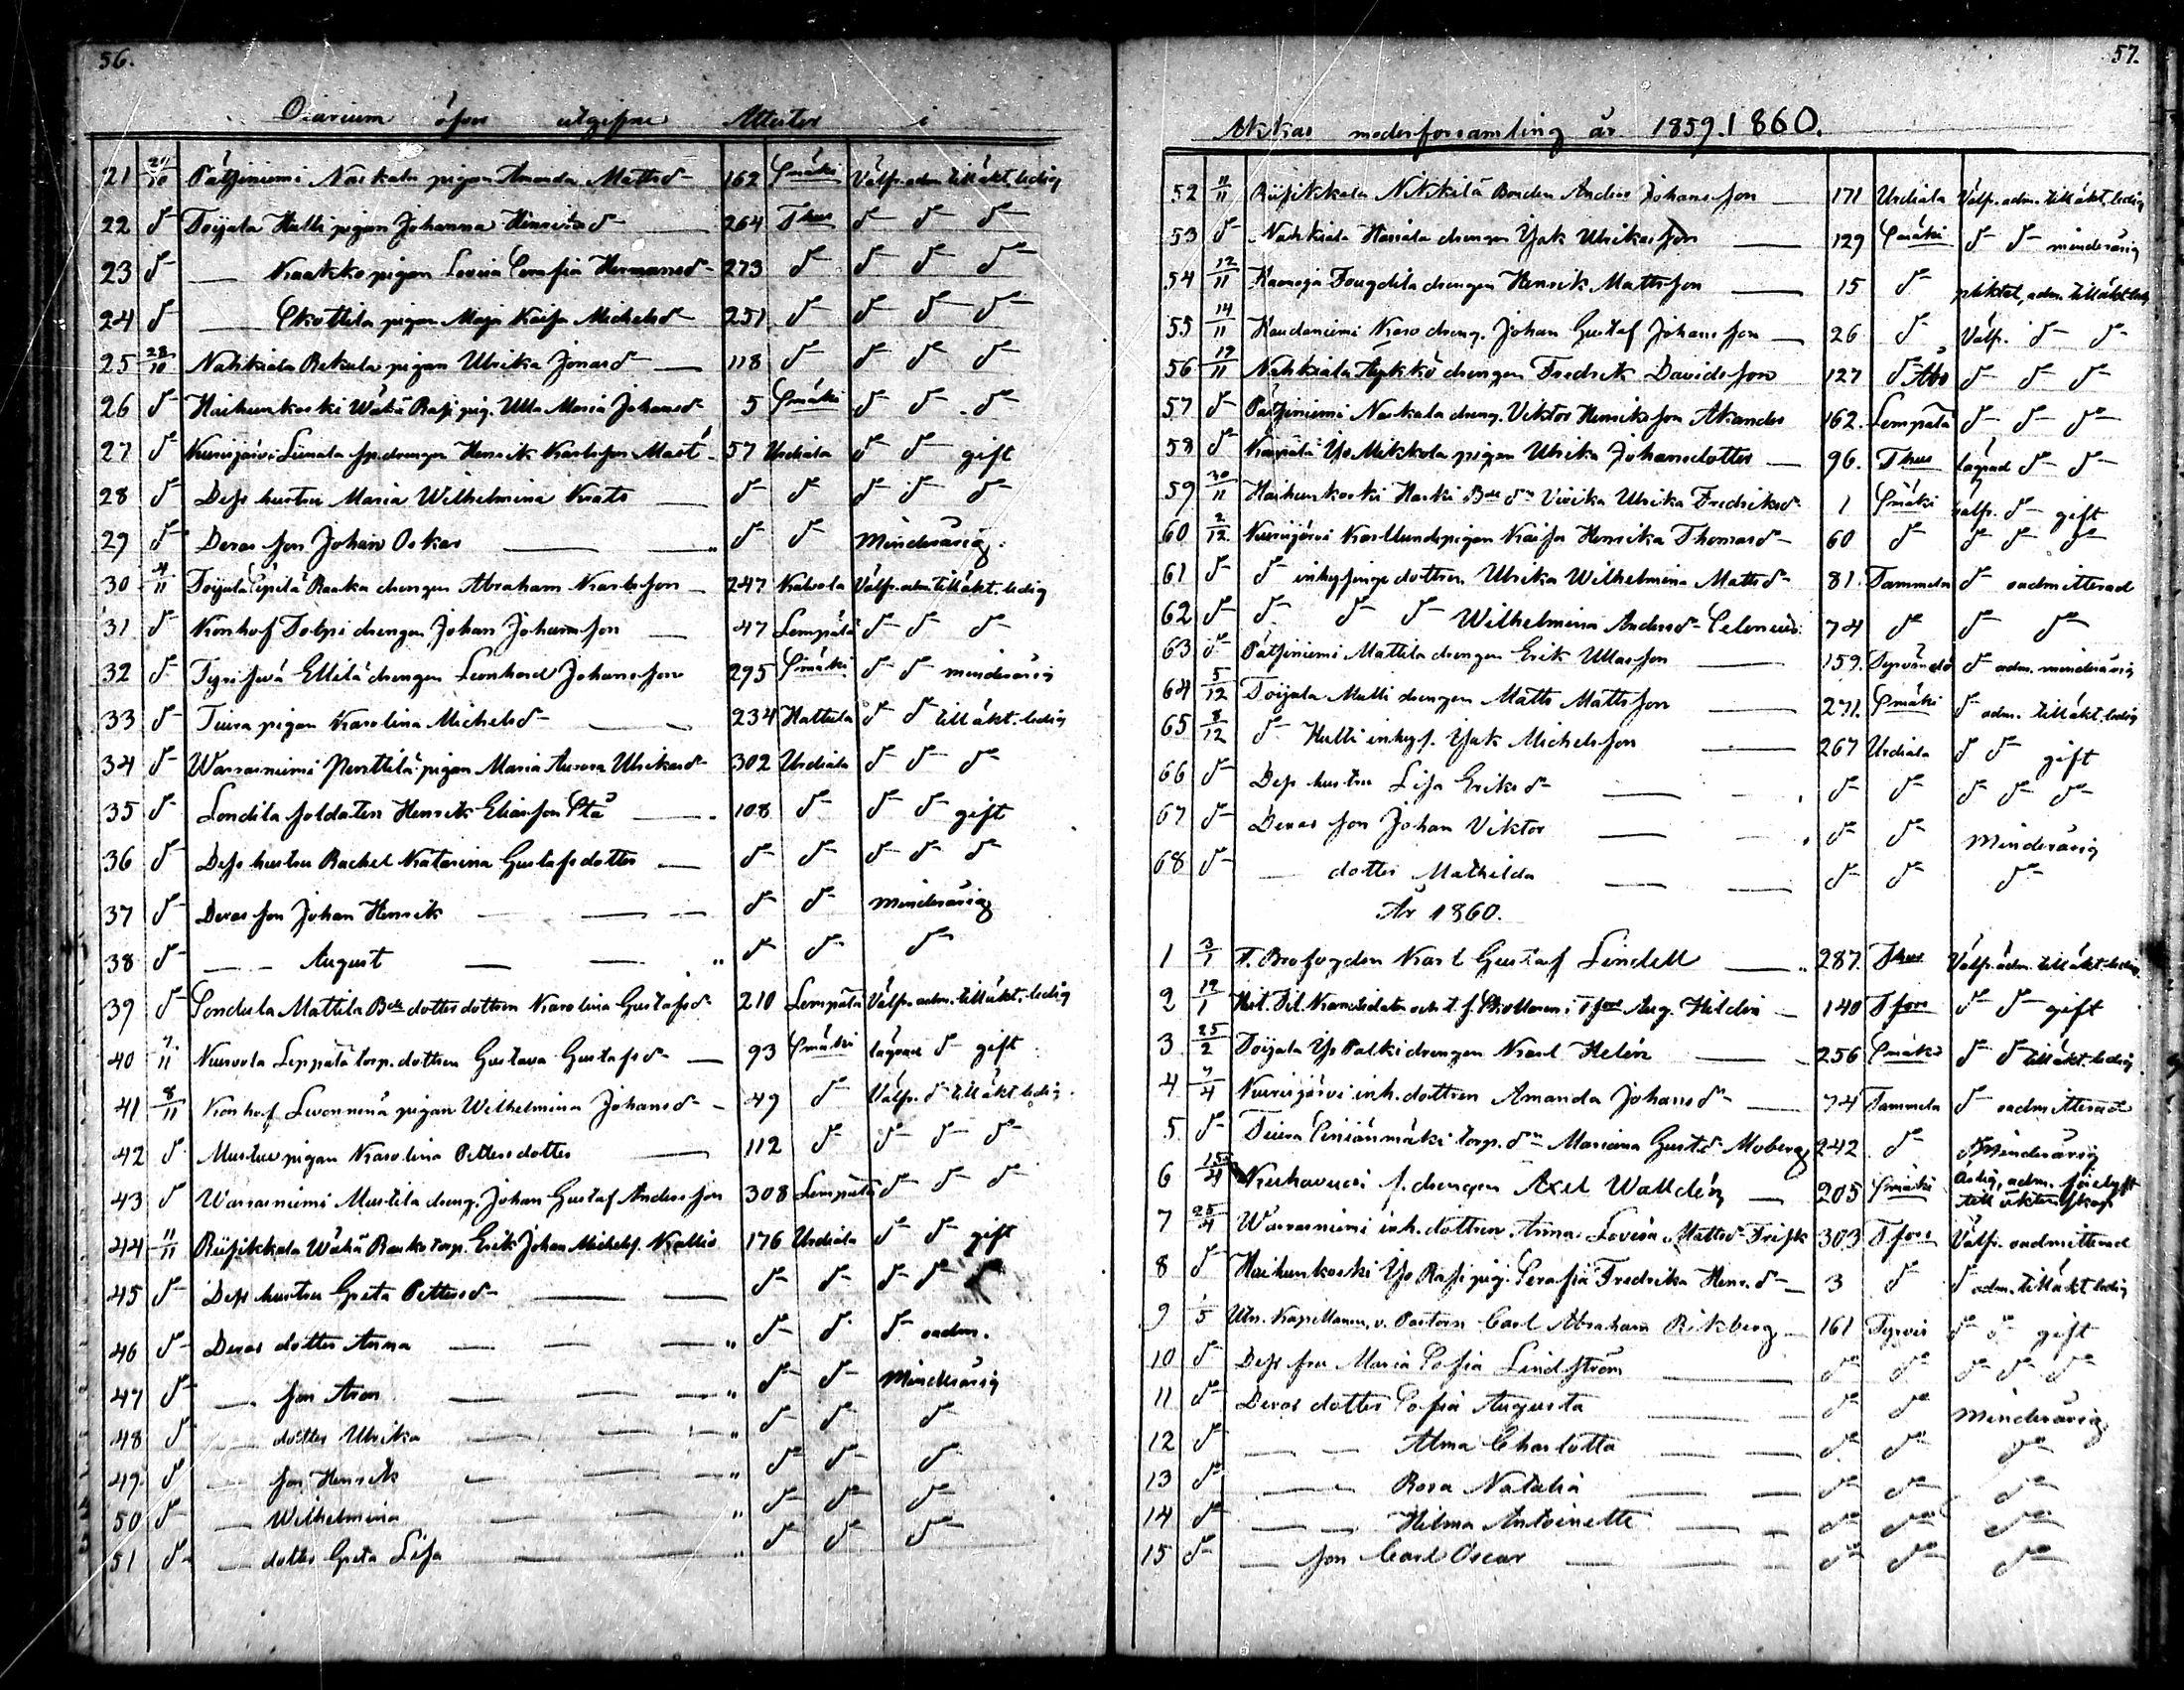 56.
Diarium öfver utgifne Attester i
21 20/10 Pätsiniemi Naskala pigan Amanda Mattsd. 162 Smäki Välfr. adm. till äkt. ledig
22 d Toijala Hulli pigan Johanna Henriksd 264 Thus d d d
23 d — Kraakko pigan Lovisa Serafia Hermansd 273 d d d d
24 d — Skottila pigan Maja Kaisa Michelsd 251 d d d d
25 28/10 Nahkiala Rekula pigan Ulrika Jonasd — 118 d d d d
26 d Haihunkoski Wähä Rasi pig. Ulla Maria Johansd 5 Smäki d d d
27 d Kurisjärvi Liunala sp. drengen Henrik Karlsson Mast 57 Urdiala d d gift
28 d Dess hustru Maria Wilhelmina Krats — d d d d d
29 d Deras son Johan Oskar — — d d Minderårig.
30 4/11 Toijala Sipilä Ranka drengen Abraham Karlsson 247 Kalvola Välfr. adm. till äkt. ledig
31 d Konhof Tolpi drengen Johan Johansson — 47 Lempälä d d d
32 d Tyrisevä Ellilä drengen Leonhard Johansson 295 Smäki d d minderårig
33 d Tiura pigan Karolina Michelsd — 234 Hattula d d till äkt. ledig
34 d Warrasniemi Penttilä pigan Maria Aurora Ulrikasd 302 Urdiala d d d
35 d Londila soldaten Henrik Eliasson Stå — 108 d d d gift
36 d Dess hustru Rachel Katarina Gustafsdotter — d d d d d
37 d Deras son Johan Henrik — d d minderårig
38 d — August — d d d
39 d Sondula Mattila Bde dotter dottren Karolina Gustafsd 210 Lempälä Välfr. adm. till äkt. ledig
40 7/11 Kurvola Leppälä torp. dottren Gustava Gustafsd — 93 Smäki lagvad d gift
41 8/11 Konhof Levonnenä pigan Wilhelmina Johansd 49 d Välfr. d till äkt. ledig.
42 d Mustue pigan Karolina Pettersdotter — 112 d d d d
43 d Warrasniemi Mustila dreng. Johan Gustaf Andersson 308 Lempälä d d d
44 11/11 Riisikkala Wähä Ranko torp. Erik Johan Michels. Kallio 176 Urdiala d d gift
45 d Dess hustru Greta Pettersd — d d d d d
46 d Deras dotter Anna — d d d oadm.
47 d — son Aron — d d Minderårig
48 d — dotter Ulrika — d d d
49 d — son Henrik — d d d
50 d — Wilhelmina — d d d
51 d — dotter Greta Lisa — d d d
57.
Akkas moderförsamling år 1859. 1860.
52 11/11 Riisikkala Nikkilä Bonden Anders Johansson — 171 Urdiala Välfr. adm. till äkt. ledig
53 d Nahkiala Hariala drengen Isak Ulrikasson — 129 Smäki d d minderårig
54 12/11 Kaanoja Fougdila drengen Henrik Mattsson — 15 d adm. till äkt. led
55 14/11 Kaudaniemi Karo dreng. Johan Gustaf Johansson — 26 d Välfr. d d
56 19/11 Nahkiala Äykkö drengen Fredrik Davidsson 127 d Åbo d d d
57 d Pätsiniemi Naskala dreng. Viktor Henriksson Akander 162. Lempälä d d d
58 d Kaiviälä Yli Mikkola pigan Ulrika Johansdotter — 96. Thus lagvad d d
59 30/11 Haihunkoski Harki Bde dn Vivika Ulrika Fredriksd 1 Smäki välfr. d gift
60 2/12 Kurisjärvi Karllunds pigan Kaisa Henrika Thomasd 60 d d d d
61 d d inhysinge dottren Ulrika Wilhelmina Mattsd 81. Tammela d oadmitterad
62 d d d d Wilhelmina Andersd Celonius 74 d d d
63 d Pätsiniemi Mattila drengen Erik Ullasson — 159. Tyrvändö d adm. minderårig
64 5/12 Toijala Mulli drengen Matts Mattsson — 271. Smäki d adm. till äkt. ledig
65 8/12 d Hulli inhys. Isak Michelsson — 267 Urdiala d d gift
66 d Dess hustru Lisa Eriksd — d d d d d
67 d Deras son Johan Viktor — d d Minderårig
68 d — dotter Mathilda — d d d
År 1860.
1 3/1 T. Brofogden Karl Gustaf Lindell — 287. Thus Välfr. adm. till äkt. ledig.
2 12/1 Hist. Fil. Kandidaten och t. f. Skolläraren i Tfors Aug. Hildén — 140 Tfors d d gift
3 25/2 Toijala Yli Palki drengen Karl Helén — 256 Smäki d d till äkt. ledig
4 7/4 Kurisjärvi inh. dottren Amanda Johansd — 74 Tammela d oadmitterad
5 d Tiura Siniänmäki torp. dn Mariana Gustd Moberg 242 d Minderårig
6 15/4 Kurhavuori f. drengen Axel Walldén — 205 Smäki adm.
till äktenskap
7 25/4 Warrasniemi inh. dottren Anna Lovisa Mattsd Frisk 303 Tfors Välfr. oadmitterad
8 d Haihunkoski Yli Rasi pig. Serafia Fredrika Henr. d — 3 d d adm. till äkt ledig
9 1/5 Utn. Kapellanen, v. Pastorn Carl Abraham Rikberg — 161 Tyrvis d d gift
10 d Dess fru Maria Sofia Lindström — d d d d d
11 d Deras dotter Sofia Augusta — d d Minderårig
12 d — — Alma Charlotta — d d d
13 d — — Rosa Natalia — d d d
14 d — — Hilma Antoinette — d d d
15 d — son Carl Oscar — d d d